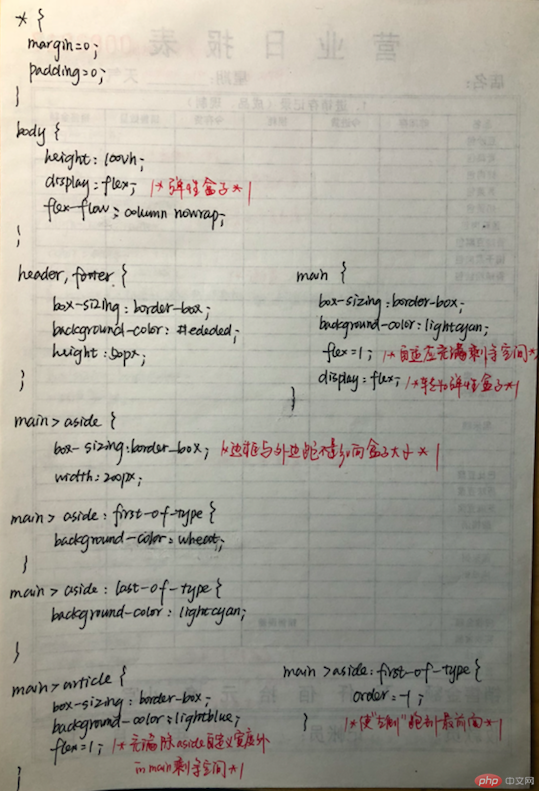 * {
margin=0;
padding=0;
}
body {
height: 100vh;
display=flex; /*弹性盒子*/
flex-flow: column nowrap;
}
header, footer {
box-sizing: border-box;
background-color: #ededed;
height: 50px;
}
main {
box-sizing: border-box;
background-color: lightcyan;
flex=1; /*自适应充满剩余空间*
display=flex; /*转为弹性盒子*/
}
main > aside {
box-sizing: border-box; /*边框与外边距不影响盒子大小*/
width: 200px;
main > aside: first-of-type {
background-color: wheat;
}
main > aside: last-of-type {
background-color: lightcyan;
}
main > article {
box-sizing: border-box;
background-color: lightblue;
flex=1; /*充满除aside自定义宽度外
在main剩余空间*/
}
main > aside: first-of-type {
order=-1;
} /*使"左侧"跑到最前面*/
营业日报表
php 中文网